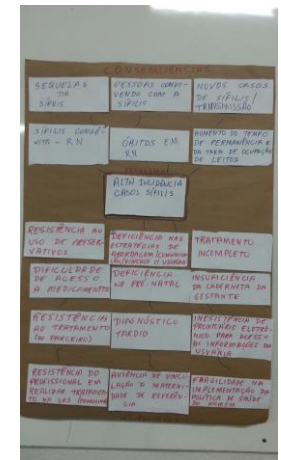 CONSEQUÊNCIAS
SEQUELAS
DA
SÍFILIS
PESSOAS CONVI-
VENDO COM A
SÍFILIS
NOVOS CASOS
DE SÍFILIS/
TRANSMISSÃO
SÍFILIS CONGÊ-
NITA - RN
ÓBITOS EM
RN
AUMENTO DO TEMPO
DE PERMANÊNCIA E
DA TAXA DE OCUPAÇÃO
DE LEITOS
ALTA INCIDÊNCIA
CASOS SÍFILIS
RESISTÊNCIA AO
USO DE PRESER-
VATIVOS
DEFICIÊNCIA NAS
ESTRATÉGIAS DE
ABORDAGEM
USUÁRIO
TRATAMENTO
INCOMPLETO
DIFICULDADE
DE ACESSO
A MEDICAMENTOS
DEFICIÊNCIA
NO PRÉ-NATAL
INSUFICIÊNCIA
DA CADERNETA DA
GESTANTE
RESISTÊNCIA
AO TRATAMENTO
(DO PARCEIRO)
DIAGNÓSTICO
TARDIO
INEXISTÊNCIA DE
PRONTUÁRIO ELETRÔ-
NICO PARA ACESSO
AS INFORMAÇÕES DA
USUÁRIA
RESISTÊNCIA DO
PROFISSIONAL EM
REALIZAR TRATAMEN-
TO NA UBS
AUSÊNCIA DE VINCU-
LAÇÃO À MATERNI-
DADE DE REFERÊN-
CIA
FRAGILIDADE NA
IMPLEMENTAÇÃO DA
POLÍTICA DE SAÚDE
DO HOMEM